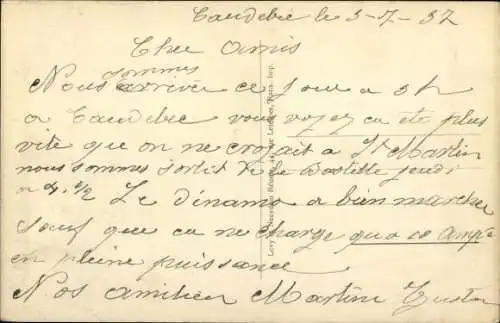 Caudebec le 3-7-37
Cher Amis
Nous sommes arrivée ce jour a 5 h
a Caudebec vous voyez ca ete plus
vite que on ne croyait a St Martin
nous sommes sortit de la Bastille jeudi
a 4.1/2 Le dinamo a bien marcher
sauf que ca ne charge qu a 10 Ampe
en pleine puissance
Nos amitier Martin
Levy et Neurdein Réunis, 44, rue Letellier, Paris. Imp.